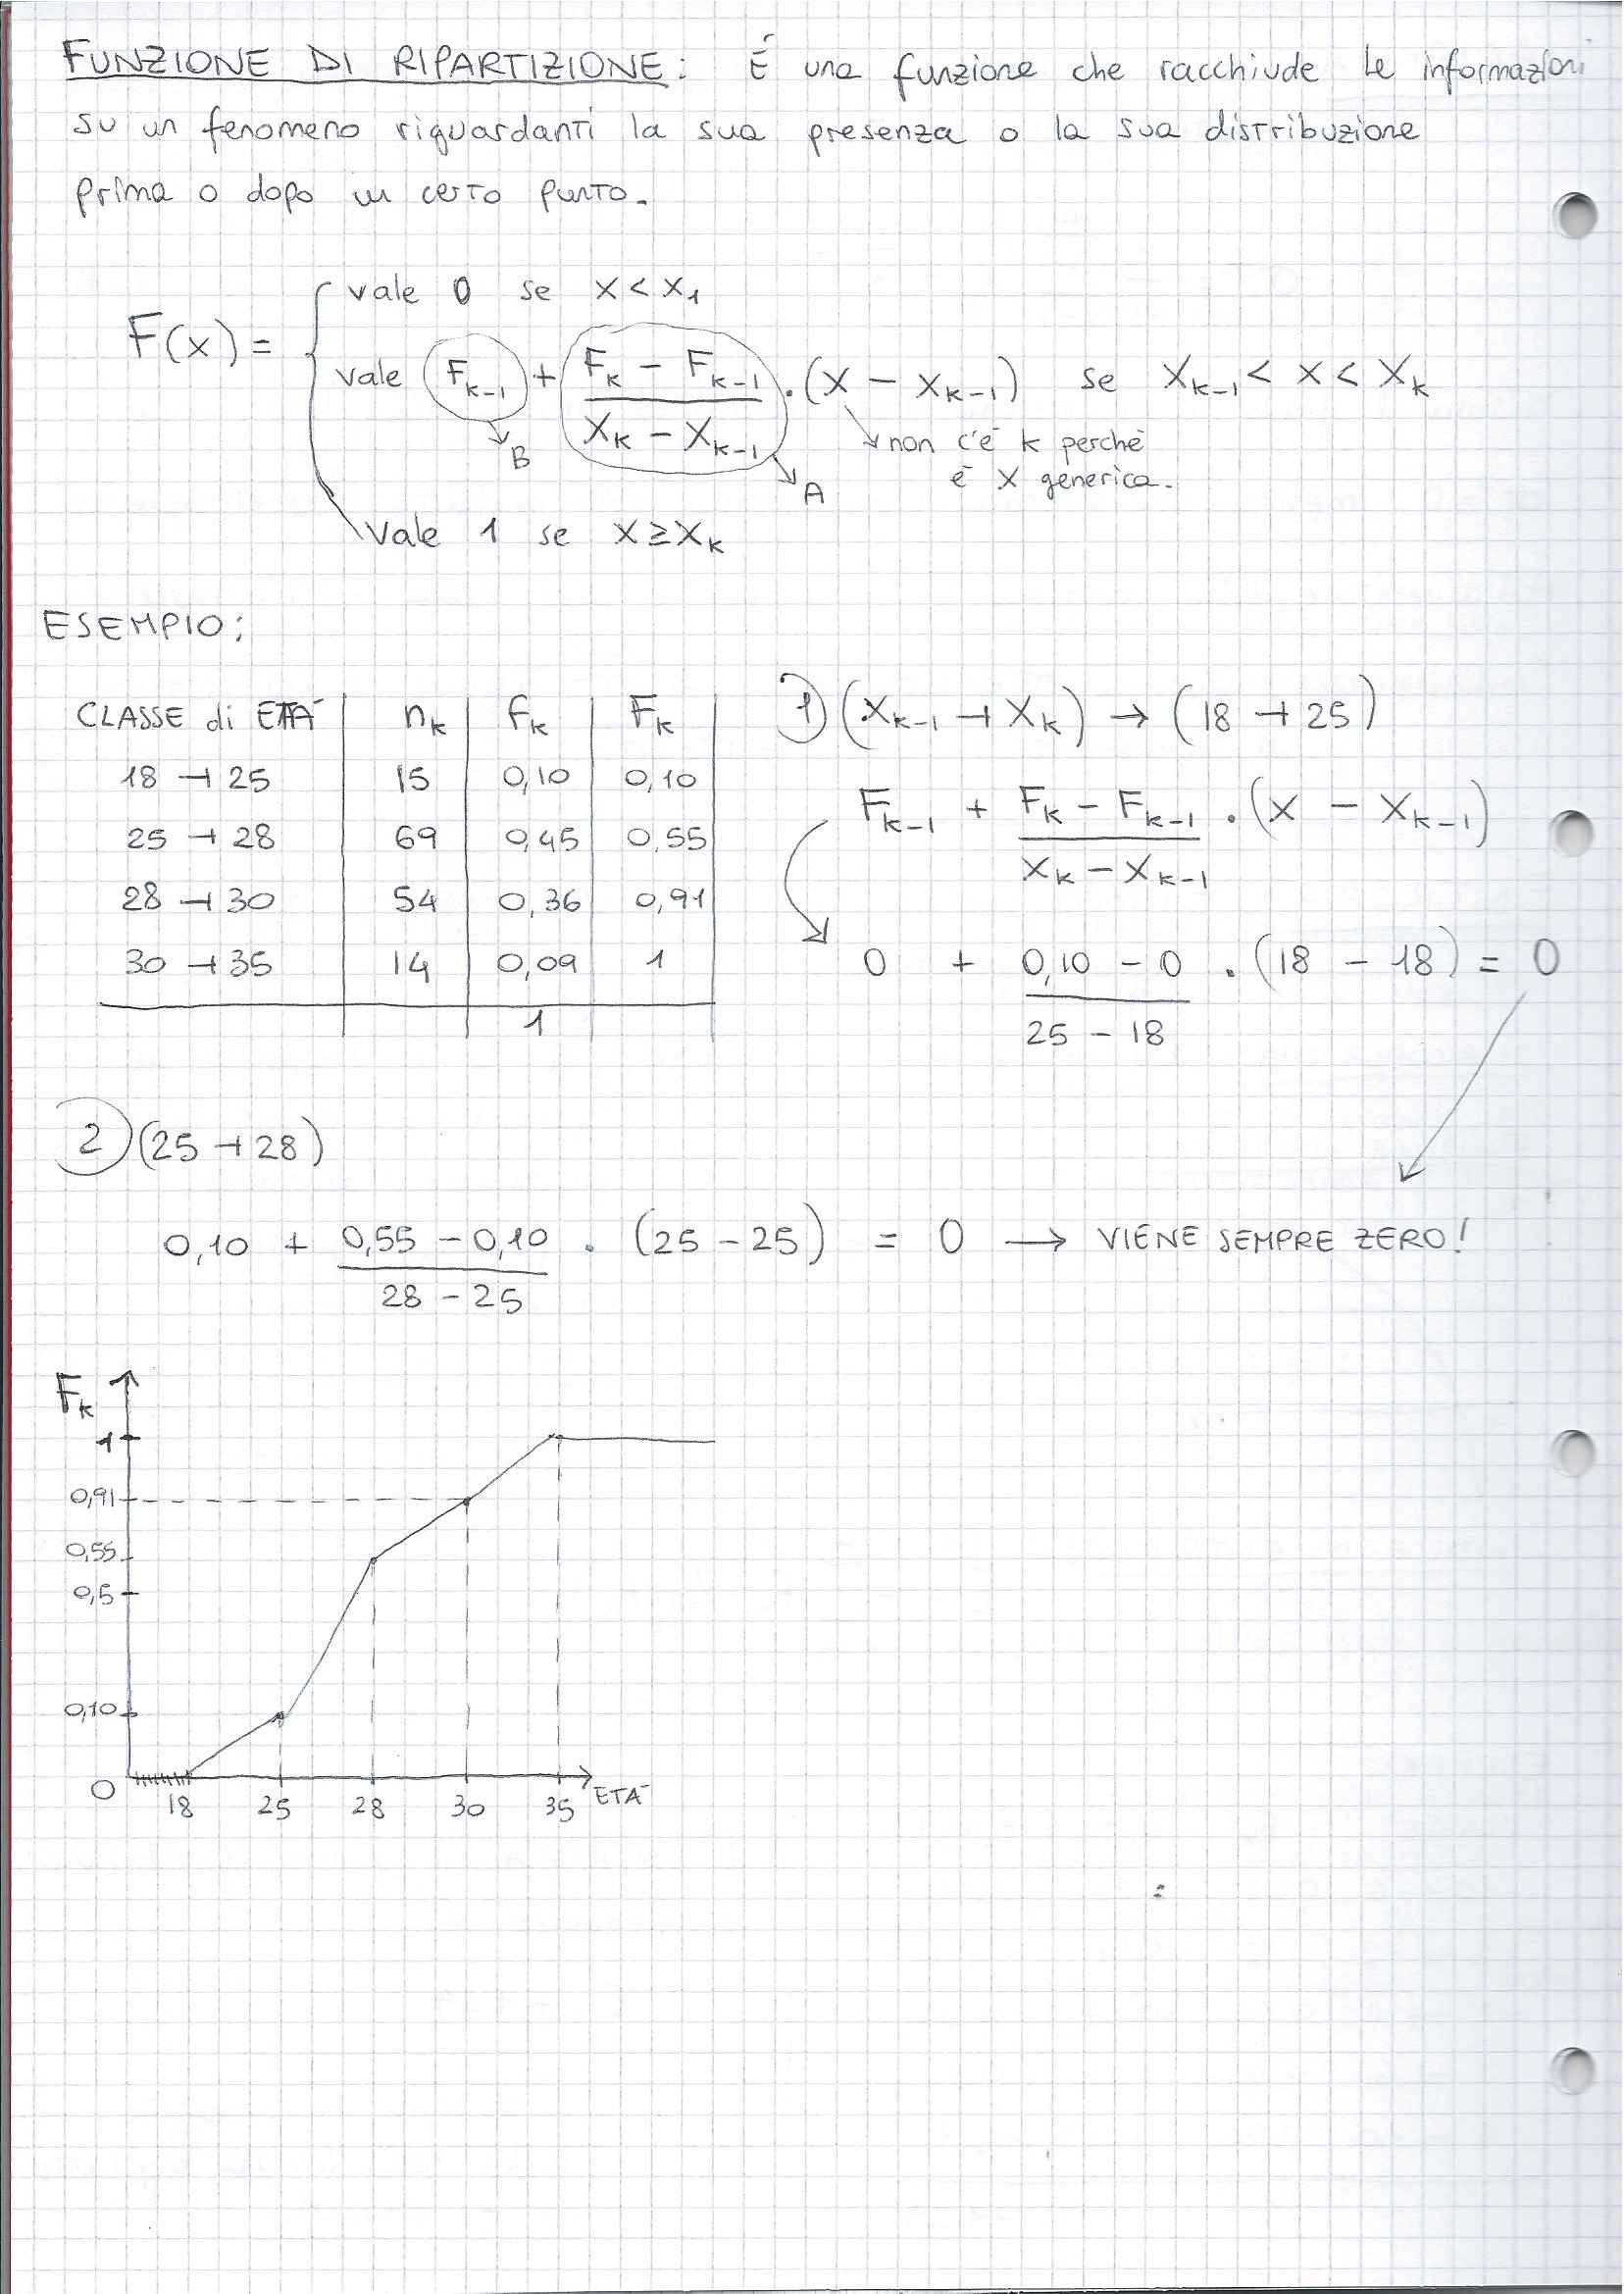 FUNZIONE DI RIPARTIZIONE: É una funzione che racchiude le informazioni
su un fenomeno riguardanti la sua presenza o la sua distribuzione
prima o dopo un certo punto.
vale 0 se x < x₁
F(x) =
vale F_{k-1} + (F_k - F_{k-1}) / (x_k - x_{k-1}) · (x - x_{k-1}) se x_{k-1} < x < x_k
B
A
non c'é k perché
é x generica.
vale 1 se x ≥ x_k
ESEMPIO:
CLASSE di ETÁ n_k f_k F_k
18 ⊣ 25 15 0,10 0,10
25 ⊣ 28 69 0,45 0,55
28 ⊣ 30 54 0,36 0,91
30 ⊣ 35 14 0,09 1
1
1) (x_{k-1} ⊣ x_k) → (18 ⊣ 25)
F_{k-1} + (F_k - F_{k-1}) / (x_k - x_{k-1}) · (x - x_{k-1})
0 + (0,10 - 0) / (25 - 18) · (18 - 18) = 0
2) (25 ⊣ 28)
0,10 + (0,55 - 0,10) / (28 - 25) · (25 - 25) = 0 → VIENE SEMPRE ZERO!
F_k
1
0,91
0,55
0,5
0,10
0
18 25 28 30 35 ETÁ